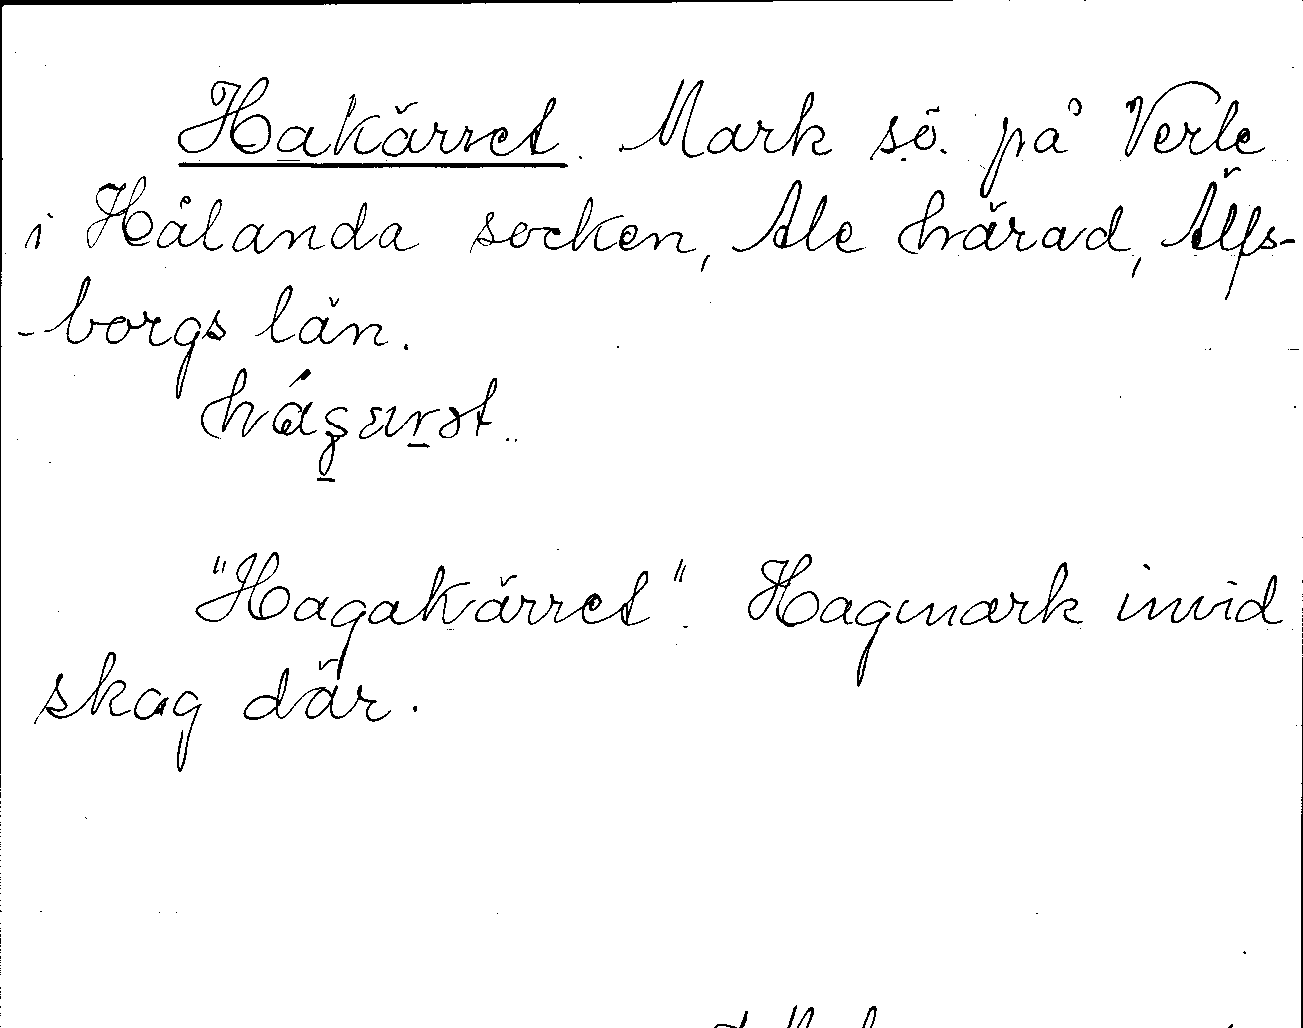 Hakärret. Mark s.ö. på Verle
i Hålanda socken, Ale härad, Älfs-
-borgs län.
"Hagakärret". Hagmark invid
skog där.